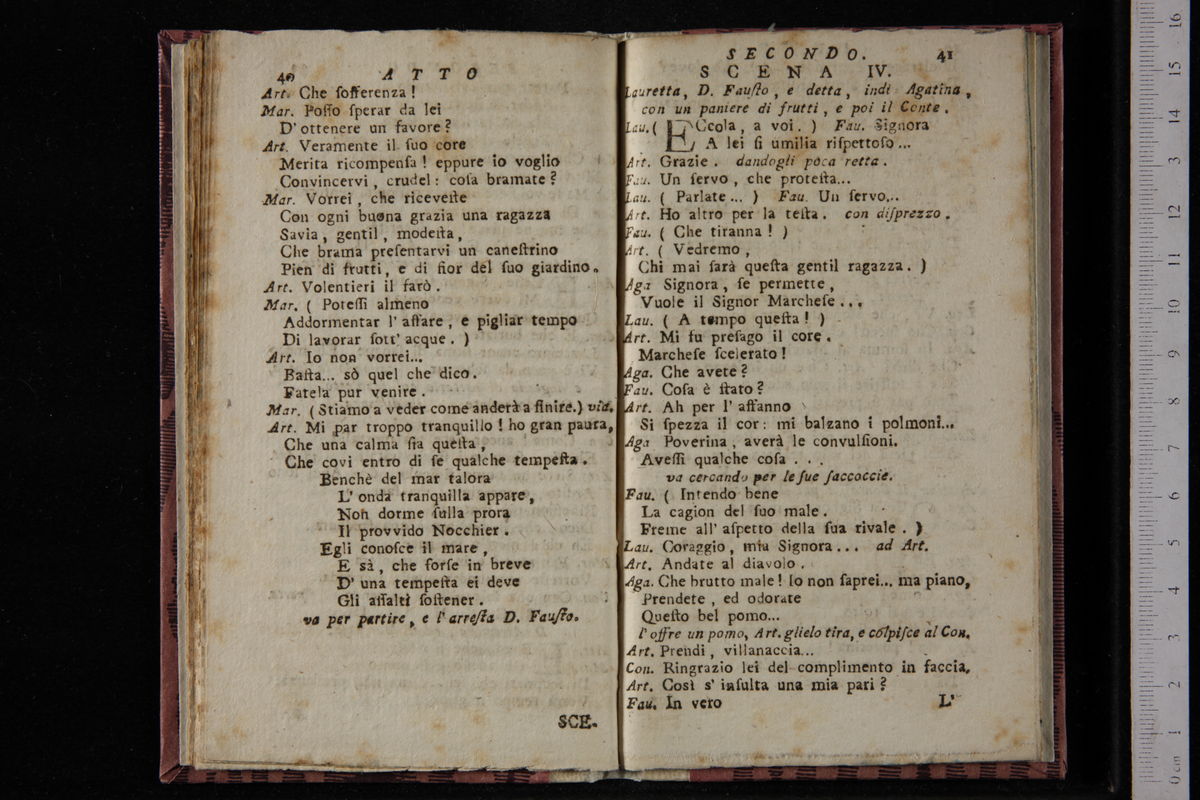 40 ATTO
Art. Che ſofferenza !
Mar. Poſſo ſperar da lei
D' ottenere un favore ?
Art. Veramente il ſuo core
Merita ricompenſa ! eppure io voglio
Convincervi , crudel : coſa bramate ?
Mar. Vorrei , che riceveſte
Con ogni buona grazia una ragazza
Savia , gentil , modeſta ,
Che brama preſentarvi un caneſtrino
Pien di frutti, e di fior del ſuo giardino.
Art. Volentieri il farò .
Mar. ( Poteſſi almeno
Addormentar l' affare , e pigliar tempo
Di lavorar ſott' acque . )
Art. Io non vorrei...
Baſta... sò quel che dico .
Fatela pur venire .
Mar. (Stiamo a veder come anderà a finire.) via.
Art. Mi par troppo tranquillo ! ho gran paura,
Che una calma ſia queſta ,
Che covi entro di ſe qualche tempeſta .
Benchè del mar talora
L' onda tranquilla appare ,
Non dorme ſulla prora
Il provvido Nocchier .
Egli conoſce il mare ,
E sà , che forſe in breve
D' una tempeſta ei deve
Gli aſſalti ſoſtener .
va per partire, e l' arreſta D. Fauſto.
SCE-
SECONDO. 41
SCENA IV.
Lauretta, D. Fauſto , e detta , indi Agatina ,
con un paniere di frutti , e poi il Conte .
Lau. ( ECcola , a voi . ) Fau. Signora
A lei ſi umilia riſpettoſo ...
Art. Grazie . dandogli poca retta .
Fau. Un ſervo , che proteſta...
Lau. ( Parlate ... ) Fau. Un ſervo...
Art. Ho altro per la teſta . con diſprezzo .
Fau. ( Che tiranna ! )
Art. ( Vedremo ,
Chi mai ſarà queſta gentil ragazza . )
Aga Signora , ſe permette ,
Vuole il Signor Marcheſe ...
Lau. ( A tempo queſta ! )
Art. Mi fu preſago il core .
Marcheſe ſcelerato !
Aga. Che avete ?
Fau. Coſa è ſtato ?
Art. Ah per l' affanno
Si ſpezza il cor : mi balzano i polmoni...
Aga Poverina , averà le convulſioni.
Aveſſi qualche coſa . . .
va cercando per le ſue ſaccoccie.
Fau. ( Intendo bene
La cagion del ſuo male .
Freme all' aſpetto della ſua rivale . )
Lau. Coraggio , mia Signora ... ad Art.
Art. Andate al diavolo .
Aga. Che brutto male ! Io non ſaprei... ma piano,
Prendete , ed odorate
Queſto bel pomo...
l' offre un pomo, Art. glielo tira, e colpiſce al Con.
Art. Prendi , villanaccia...
Con. Ringrazio lei del complimento in faccia.
Art. Così s' inſulta una mia pari ?
Fau. In vero
L'